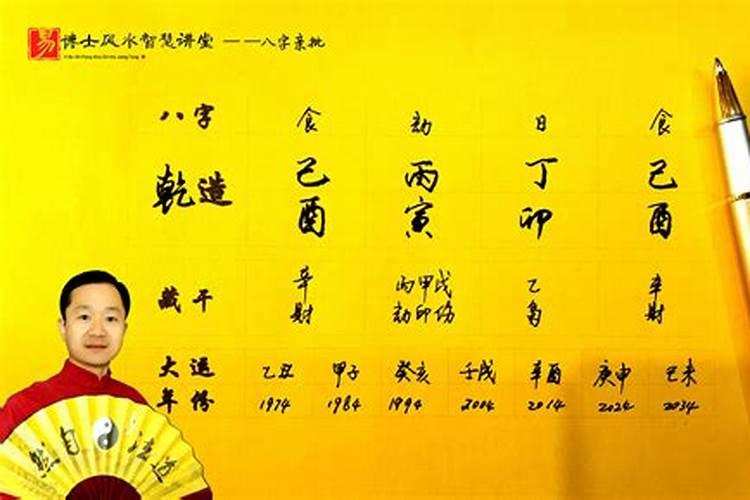 易博士风水智慧讲堂 ——八字亲批
八字 食 劫 日 食
乾造 己 丙 丁 己
酉 寅 卯 酉
藏干 辛 丙甲戊 乙 辛
財 劫印伤 枭 財
大运 乙丑 甲子 癸亥 壬戌 辛酉 庚申 己未
年份 1974 1984 1994 2004 2014 2024 2034
道法自然